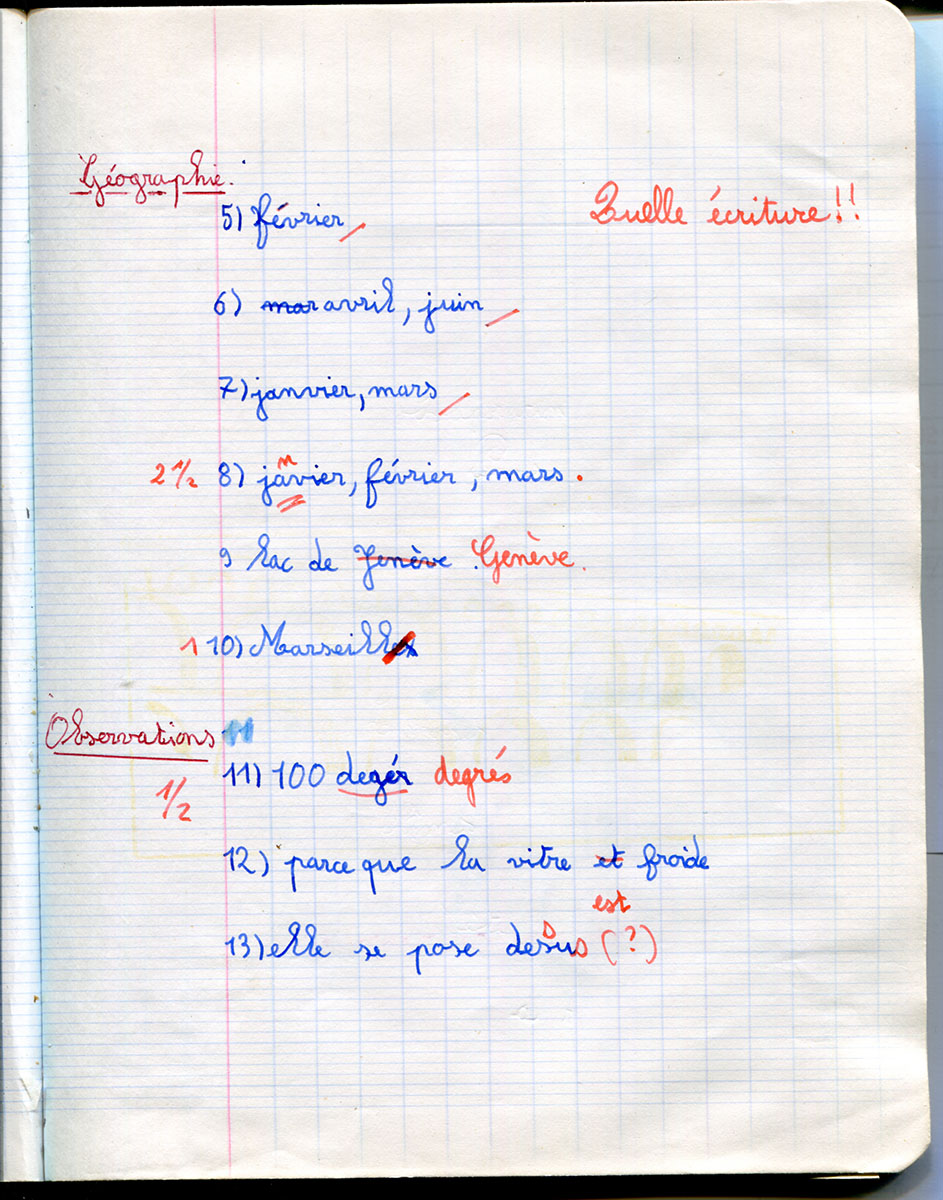 Géographie.
5) février
Quelle écriture!!
6) mar avril, juin
7) janvier, mars
n
2 1/2 8) javier, février, mars.
9 lac de Jenève Genève.
1 10) Marseilles
Observations 11
11) 100 degér degrés
1/2
12) parce que la vitre et froide
est
s
13) elle se pose desus (?)